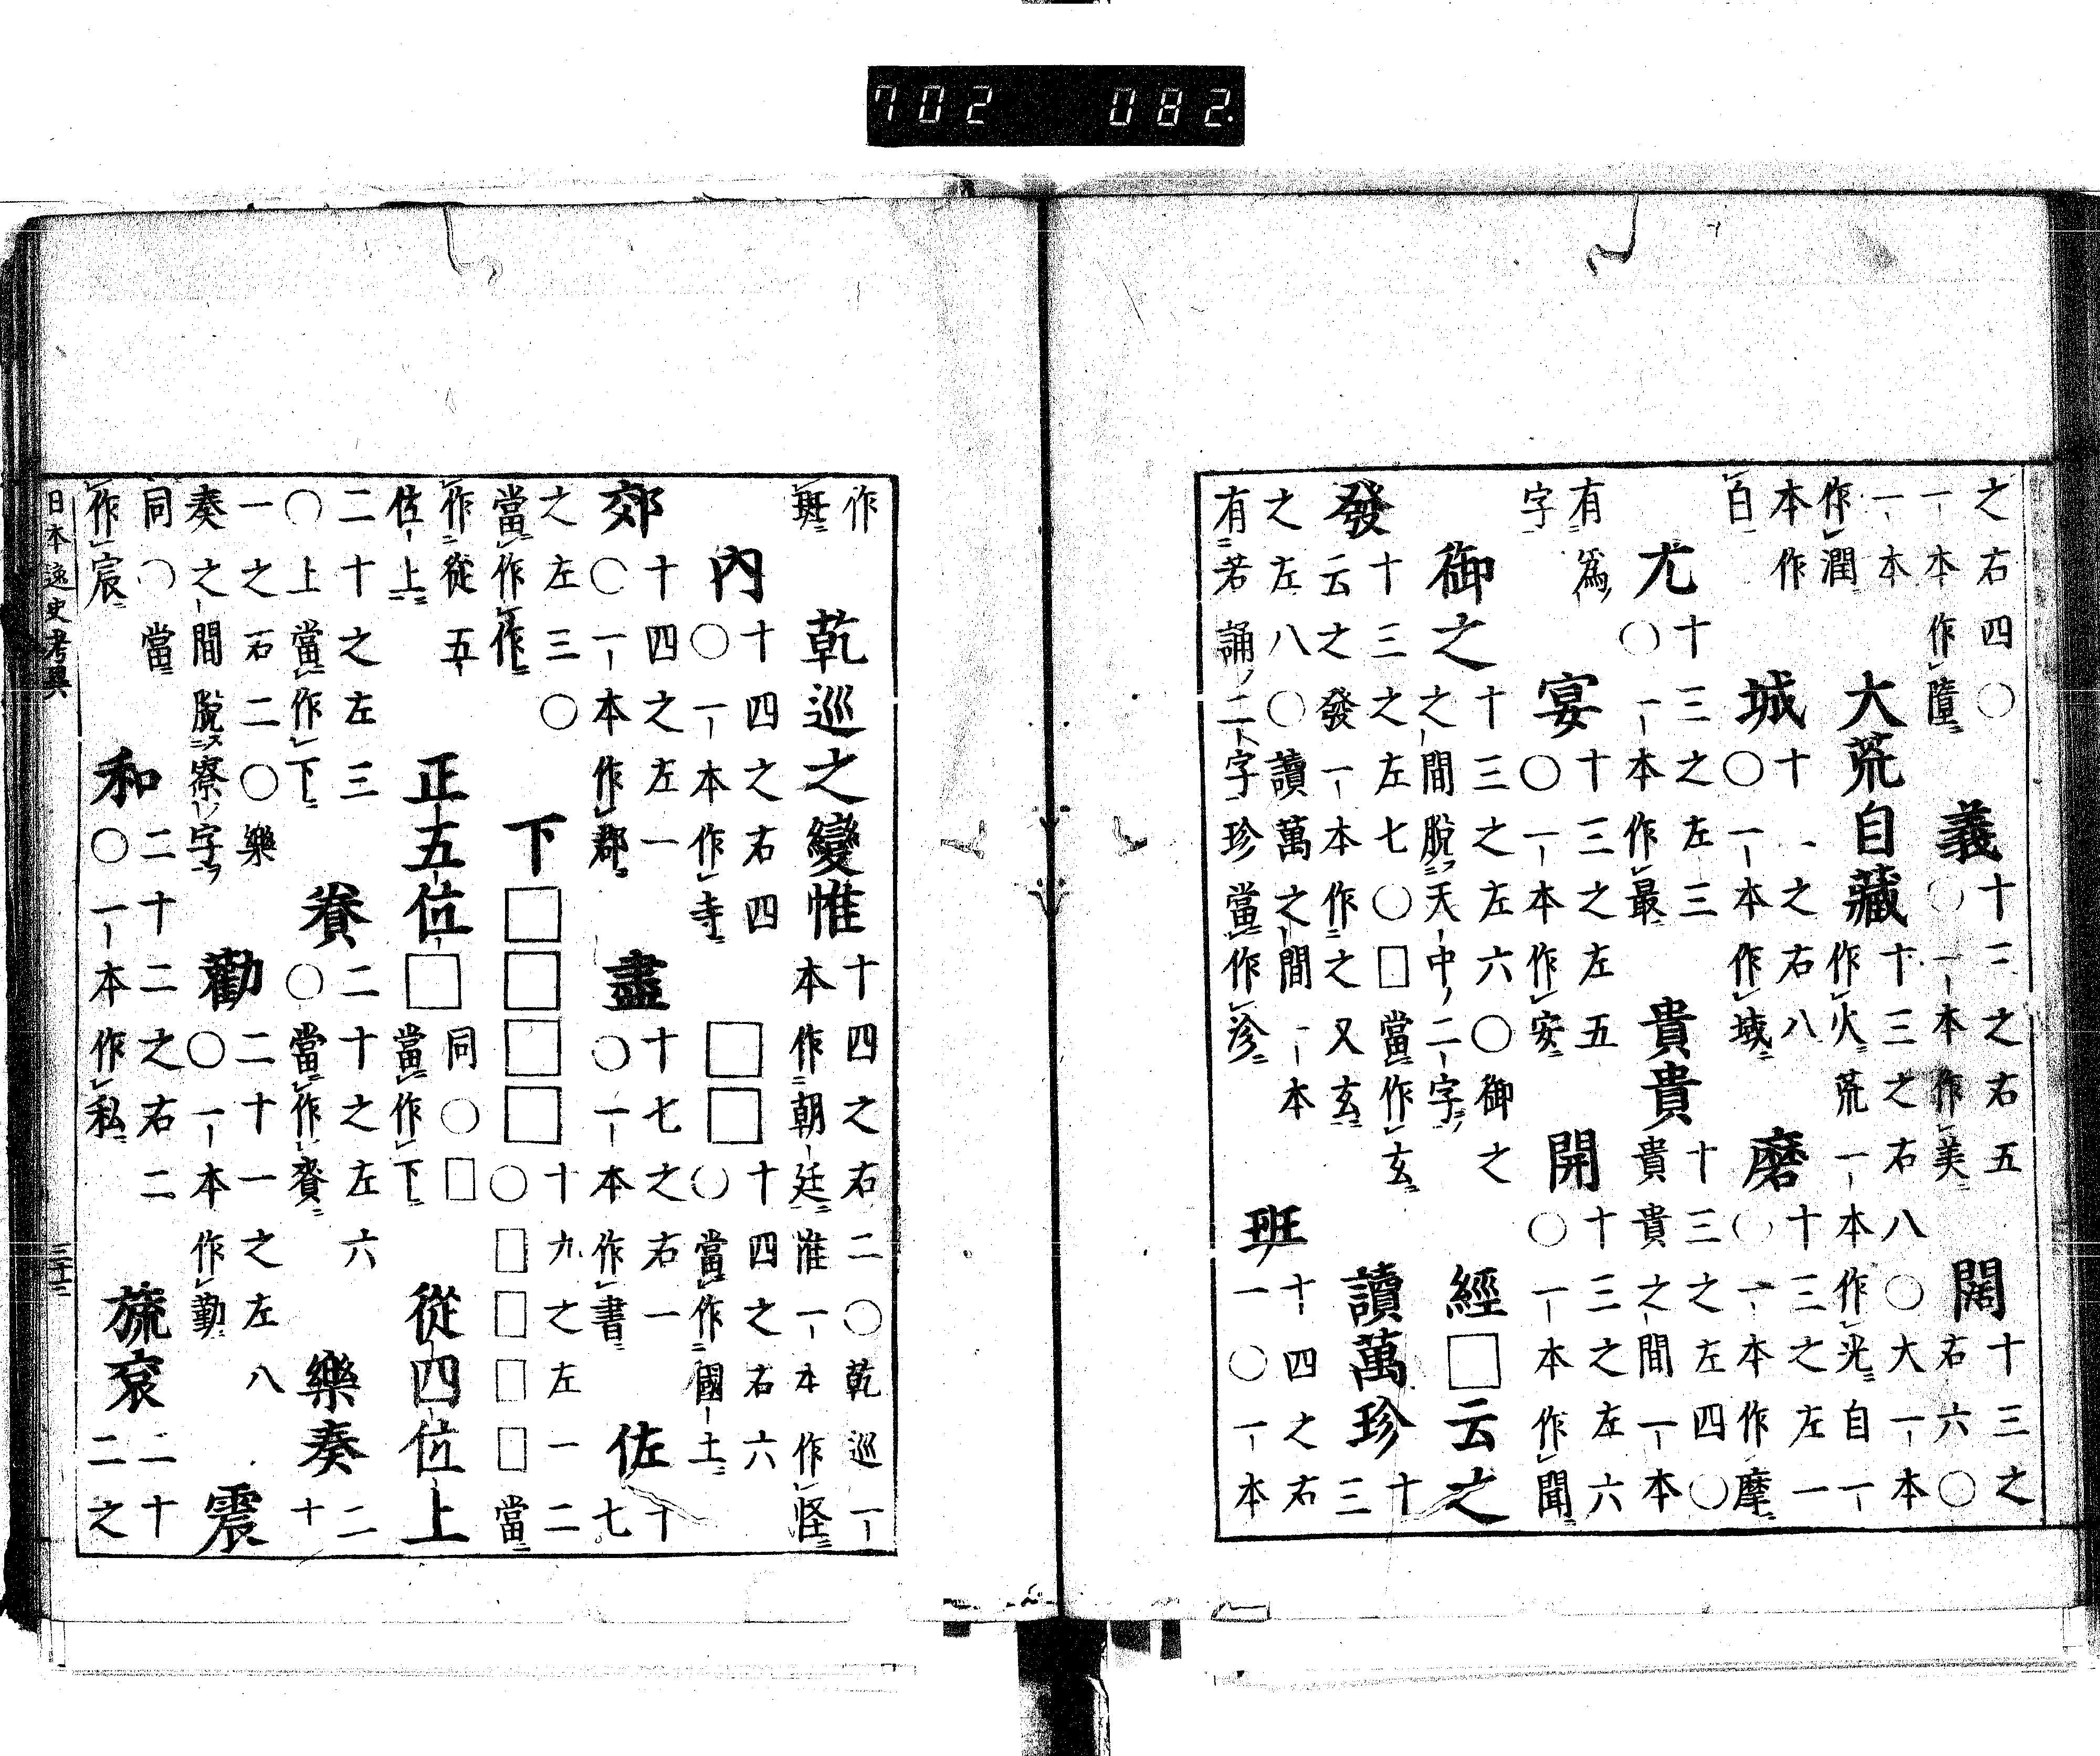 之右四〇一本作墮義十三之右五〇一本作美闊十三之右六〇
一本作潤大荒自藏十三之右八〇大一本作火荒一本作光自一
本作白城十一之右八〇一本作域磨十三之左一〇一本作摩
尤十三之左三〇一本作最貴貴十三之左四〇貴貴之間一本
有爲字宴十三之左五〇一本作安開十三之左六〇一本作聞
御之十三之左六〇御之之間脫天中二字經□云之
發十三之左七〇□當作玄云之發一本作之又玄讀萬珍十三
之左八〇讀萬之間一本有若誦二字珍當作沴班十四之右一〇一本
作斑乾巡之變惟十四之右二〇乾巡一本作朝廷惟一本作怪
內十四之右四〇一本作寺□□十四之右六〇當作國土
郊十四之左一〇一本作郡盡十七之右一〇一本作書佐十七
之左三〇當作作下□□□□十九之左一二〇□□□□當
作從五位上正五位□同〇□當作下從四位上
二十之左三〇上當作下二十之左六〇當作賚樂奏二十
一之右二〇樂奏之間脫寮字勸二十一之左八〇一本作勤震
同〇當作宸和二十二之右二〇一本作私旒袞二十二之
日本逸史考異 三十二
702 082